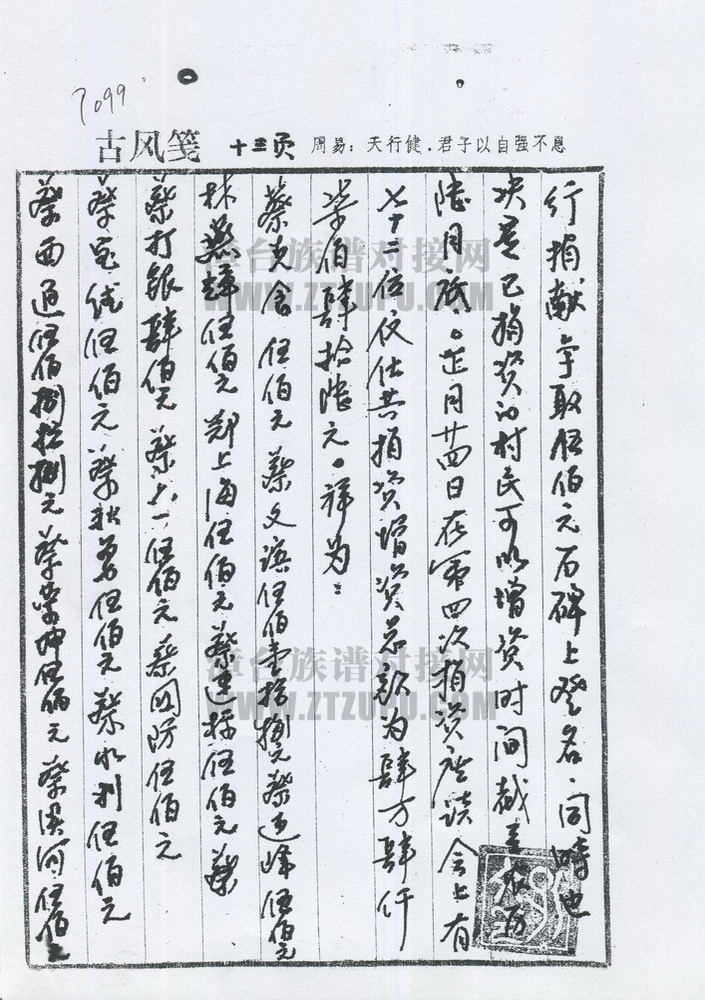 7099
古风笺 十三页 周易：天行健．君子以自强不息
行捐献争取伍佰元石碑上登名．同时也
决定已捐资的村民可以增资时间截至农历
陆月底。芷月廿四日在第四次捐资座谈会上有
七十二位仪仕共捐资增资总款为肆万肆仟
柒佰肆拾陆元。祥为：
蔡光含伍佰元 蔡文滨伍佰壹拾捌元 蔡连峰伍佰元
林燕辉伍佰元 郑上海伍佰元 蔡建标伍佰元 蔡
蔡打银肆佰元 蔡六一伍佰元 蔡国防伍佰元
蔡 伍佰元 蔡秋勇伍佰元 蔡水利伍佰元
蔡西通伍佰捌拾捌元 蔡荣坤伍佰元 蔡溪河伍佰元
漳台族谱对接网
WWW.ZTZUPU.COM
漳台族谱对接网
WWW.ZTZUPU.COM